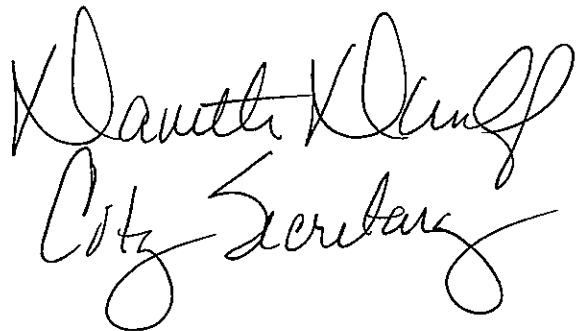 Danette Dunlap
City Secretary